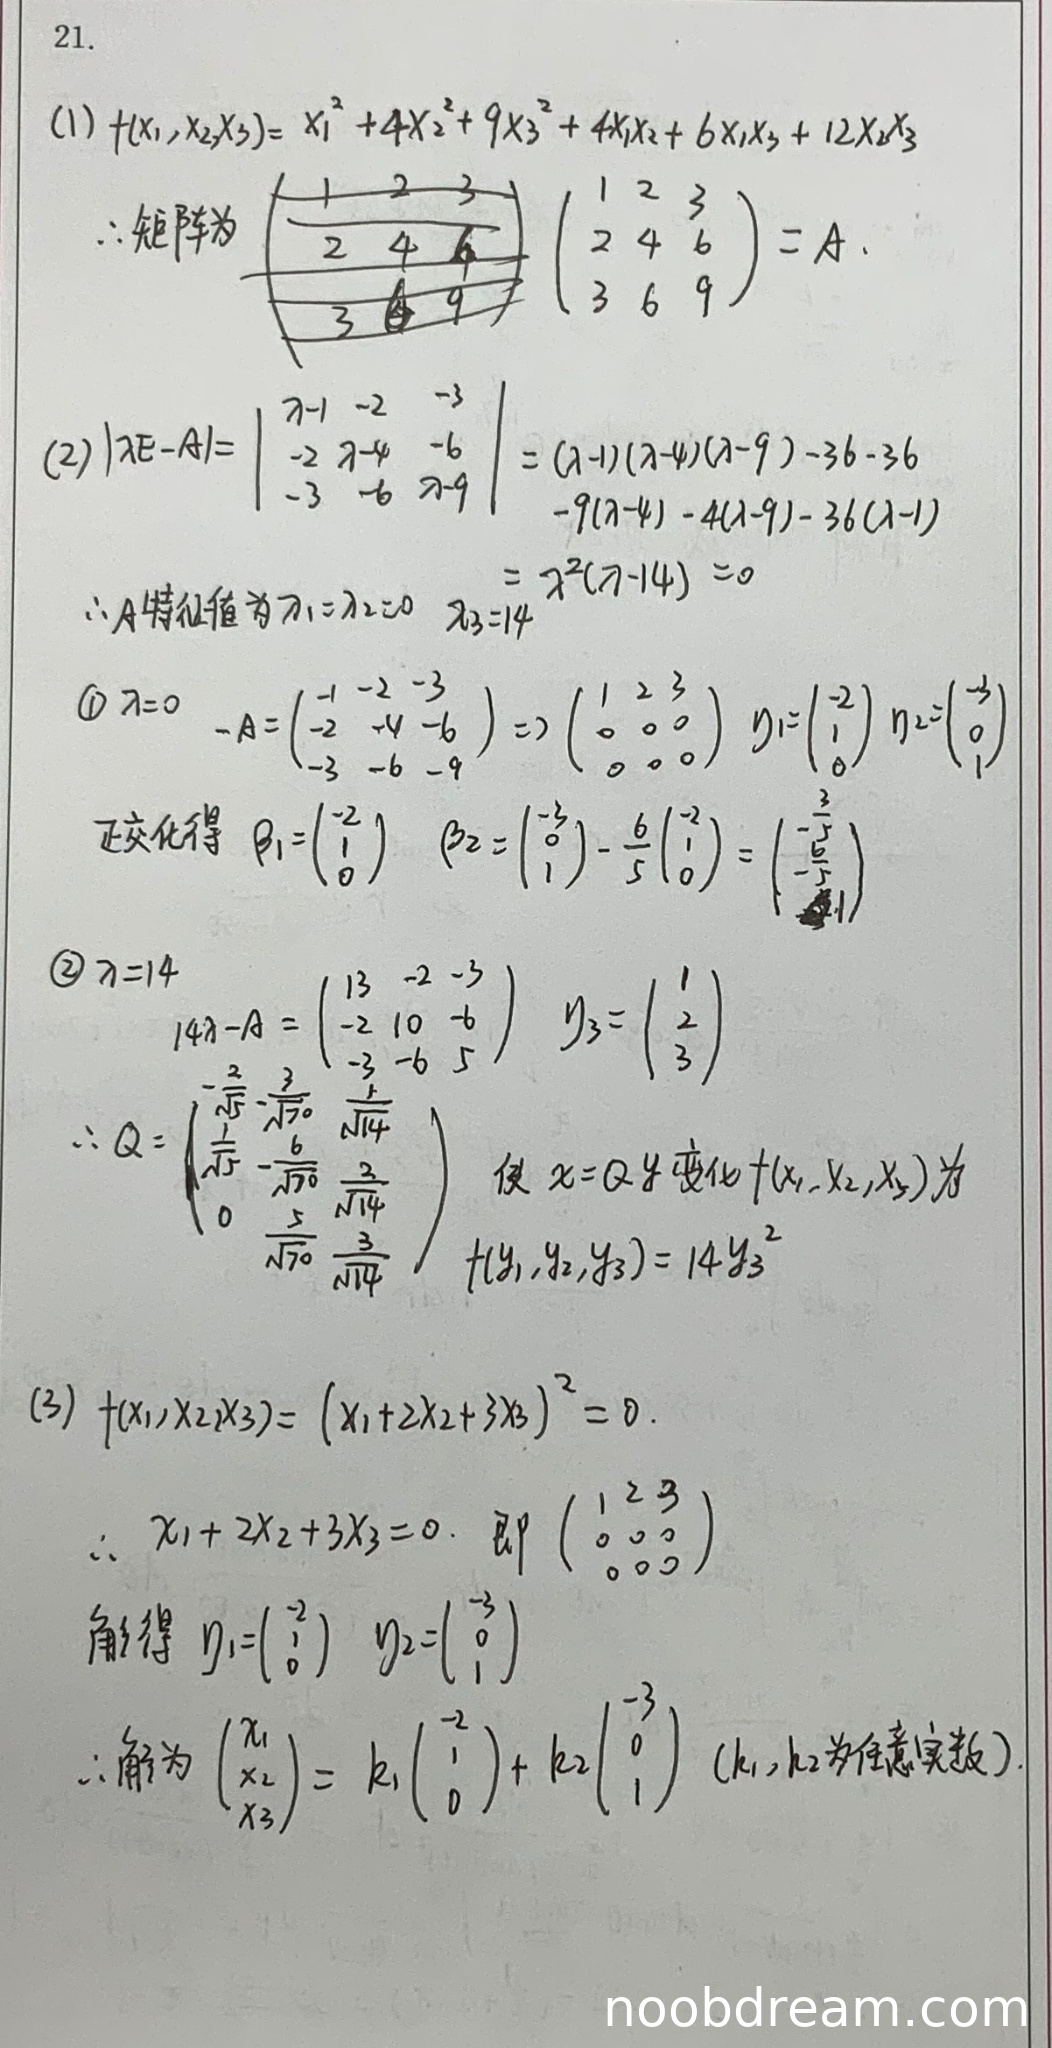 21.
(1) f(x₁,x₂,x₃)= x₁² +4x₂² + 9x₃² + 4x₁x₂ + 6x₁x₃ + 12x₂x₃
∴矩阵为 (1 2 3; 2 4 6; 3 6 9) (1 2 3; 2 4 6; 3 6 9) = A.
(2) |λE-A|= |λ-1 -2 -3; -2 λ-4 -6; -3 -6 λ-9| = (λ-1)(λ-4)(λ-9) -36-36
-9(λ-4) -4(λ-9) -36(λ-1)
= λ²(λ-14) =0
∴A特征值为λ₁=λ₂=0 λ₃=14
① λ=0 -A=(-1 -2 -3; -2 -4 -6; -3 -6 -9) => (1 2 3; 0 0 0; 0 0 0) η₁=(-2; 1; 0) η₂=(-3; 0; 1)
正交化得 β₁=(-2; 1; 0) β₂=(-3; 0; 1) - 6/5 (-2; 1; 0) = (-3/5; -6/5; 1)
② λ=14
14λ-A = (13 -2 -3; -2 10 -6; -3 -6 5) η₃=(1; 2; 3)
∴ Q=(-2/√5 -3/√70 1/√14; 1/√5 -6/√70 2/√14; 0 5/√70 3/√14) 使 x=Qy 变化 f(x₁,x₂,x₃)为
f(y₁,y₂,y₃)= 14y₃²
(3) f(x₁,x₂,x₃)= (x₁+2x₂+3x₃)² =0.
∴ x₁+2x₂+3x₃=0. 即 (1 2 3; 0 0 0; 0 0 0)
解得 η₁=(-2; 1; 0) η₂=(-3; 0; 1)
∴解为 (x₁; x₂; x₃) = k₁(-2; 1; 0) + k₂(-3; 0; 1) (k₁,k₂为任意实数).
noobdream.com